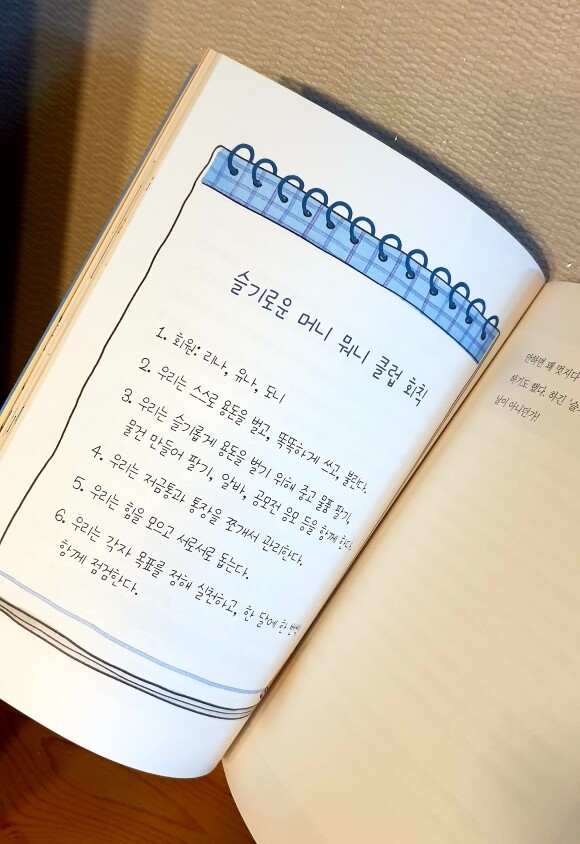 슬기로운 머니 뭐니 클럽 회칙
1. 회원: 리나, 유나, 도니
2. 우리는 스스로 용돈을 벌고, 똑똑하게 쓰고, 불린다.
3. 우리는 슬기롭게 용돈을 벌기 위해 중고 물품 팔기,
물건 만들어 팔기, 알바, 공모전 응모 등을 함께 한다.
4. 우리는 저금통과 통장을 쪼개서 관리한다.
5. 우리는 힘을 모으고 서로서로 돕는다.
6. 우리는 각자 목표를 정해 실천하고, 한 달에 한 번씩
함께 점검한다.
만하면 꽤 멋지다
하기도 했다. 하긴 '슬
남이 아니던가!